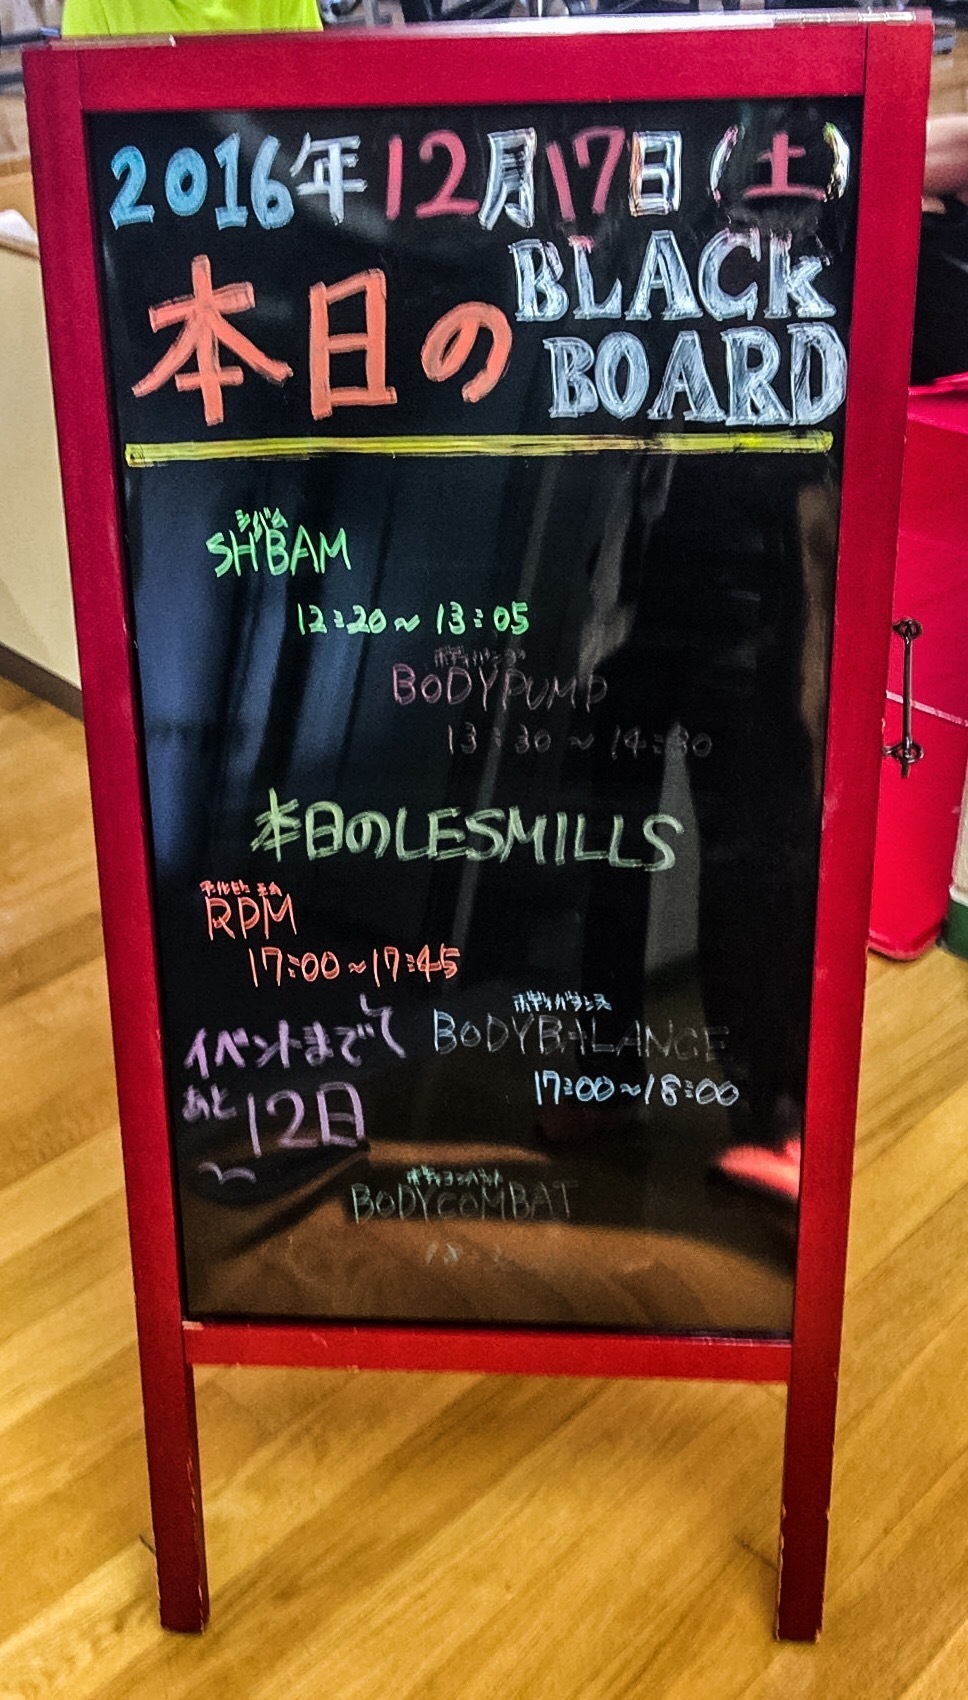 2016年12月17日(土)
本日のBLACK
BOARD
シバム
SH'BAM
12:20~13:05
ボディパンプ
BODYPUMP
13:30~14:30
本日のLESMILLS
RPM
17:00~17:45
イベントまで
あと12日
ボディバランス
BODYBALANCE
17:00~18:00
ボディコンバット
BODYCOMBAT